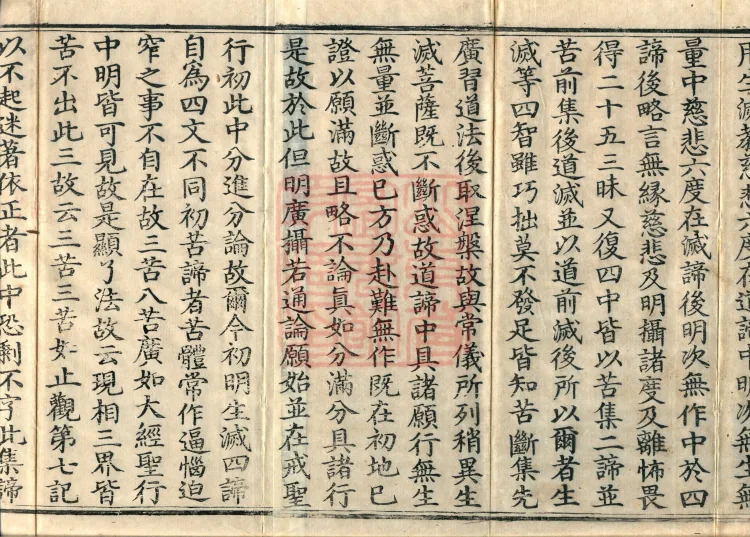 用生滅教慈悲六度在道諦中明次生無
量中慈悲六度在滅諦後明次無作中於四
諦後略言無縁慈悲及明攝諸度及離怖畏
得二十五三昧又復四中皆以苦集二諦並
苦前集後道滅並以道前滅後所以爾者生
滅等四智雖巧拙莫不發足皆知苦斷集先
廣習道法後取涅槃故與常儀所列稍異生
滅菩薩既不斷惑故道諦中具諸願行無生
無量並斷惑已方乃赴難無作既在初地已
證以願滿故且略不論眞如分滿分具諸行
是故於此但明廣攝若通論願始並在戒聖
行初此中分進分論故爾今初明生滅四諦
自爲四文不同初苦諦者苦體常作逼惱迫
窄之事不自在故三苦八苦廣如大經聖行
中明皆可見故是顯了法故云現相三界皆
苦不出此三故云三苦三苦如止觀第七記
以不起迷著依正者此中恐剩不字此集諦